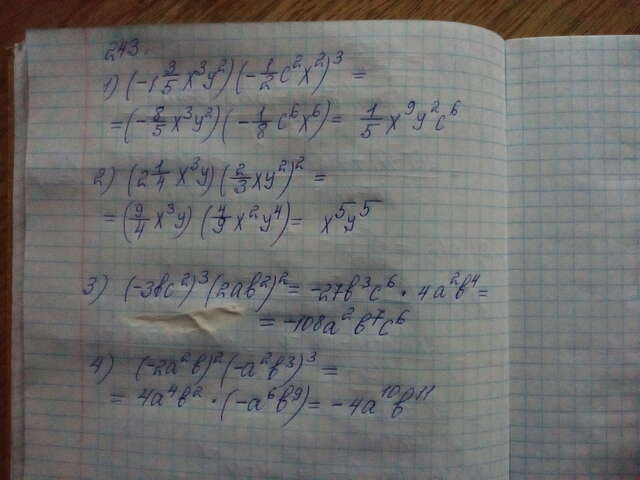 243.
1) (-1 3/5 x³y²)(-1/2 c²x²)³ =
= (-8/5 x³y²)(-1/8 c⁶x⁶) = 1/5 x⁹y²c⁶
2) (2 1/4 x³y)(2/3 xy²)² =
= (9/4 x³y)(4/9 x²y⁴) = x⁵y⁵
3) (-3вc²)³(2ав²)² = -27в³c⁶ · 4а²в⁴ =
= -108а²в⁷c⁶
4) (-2а²в)²(-а²в³)³ =
= 4а⁴в² · (-а⁶в⁹) = -4а¹⁰в¹¹